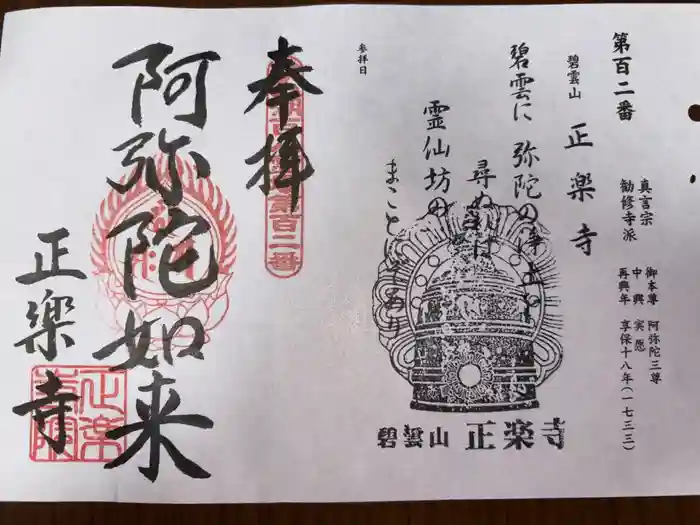 第百二番
碧雲山 正楽寺
真言宗
勧修寺派
御本尊 阿弥陀三尊
中興 実愿
再興年 享保十八年(一七三三)
碧雲に 弥陀の浄土を
尋ぬれば
霊仙坊の
まことにぞあり
参拝日
碧雲山 正楽寺
奉拝
百二番
阿弥陀如来
正楽寺